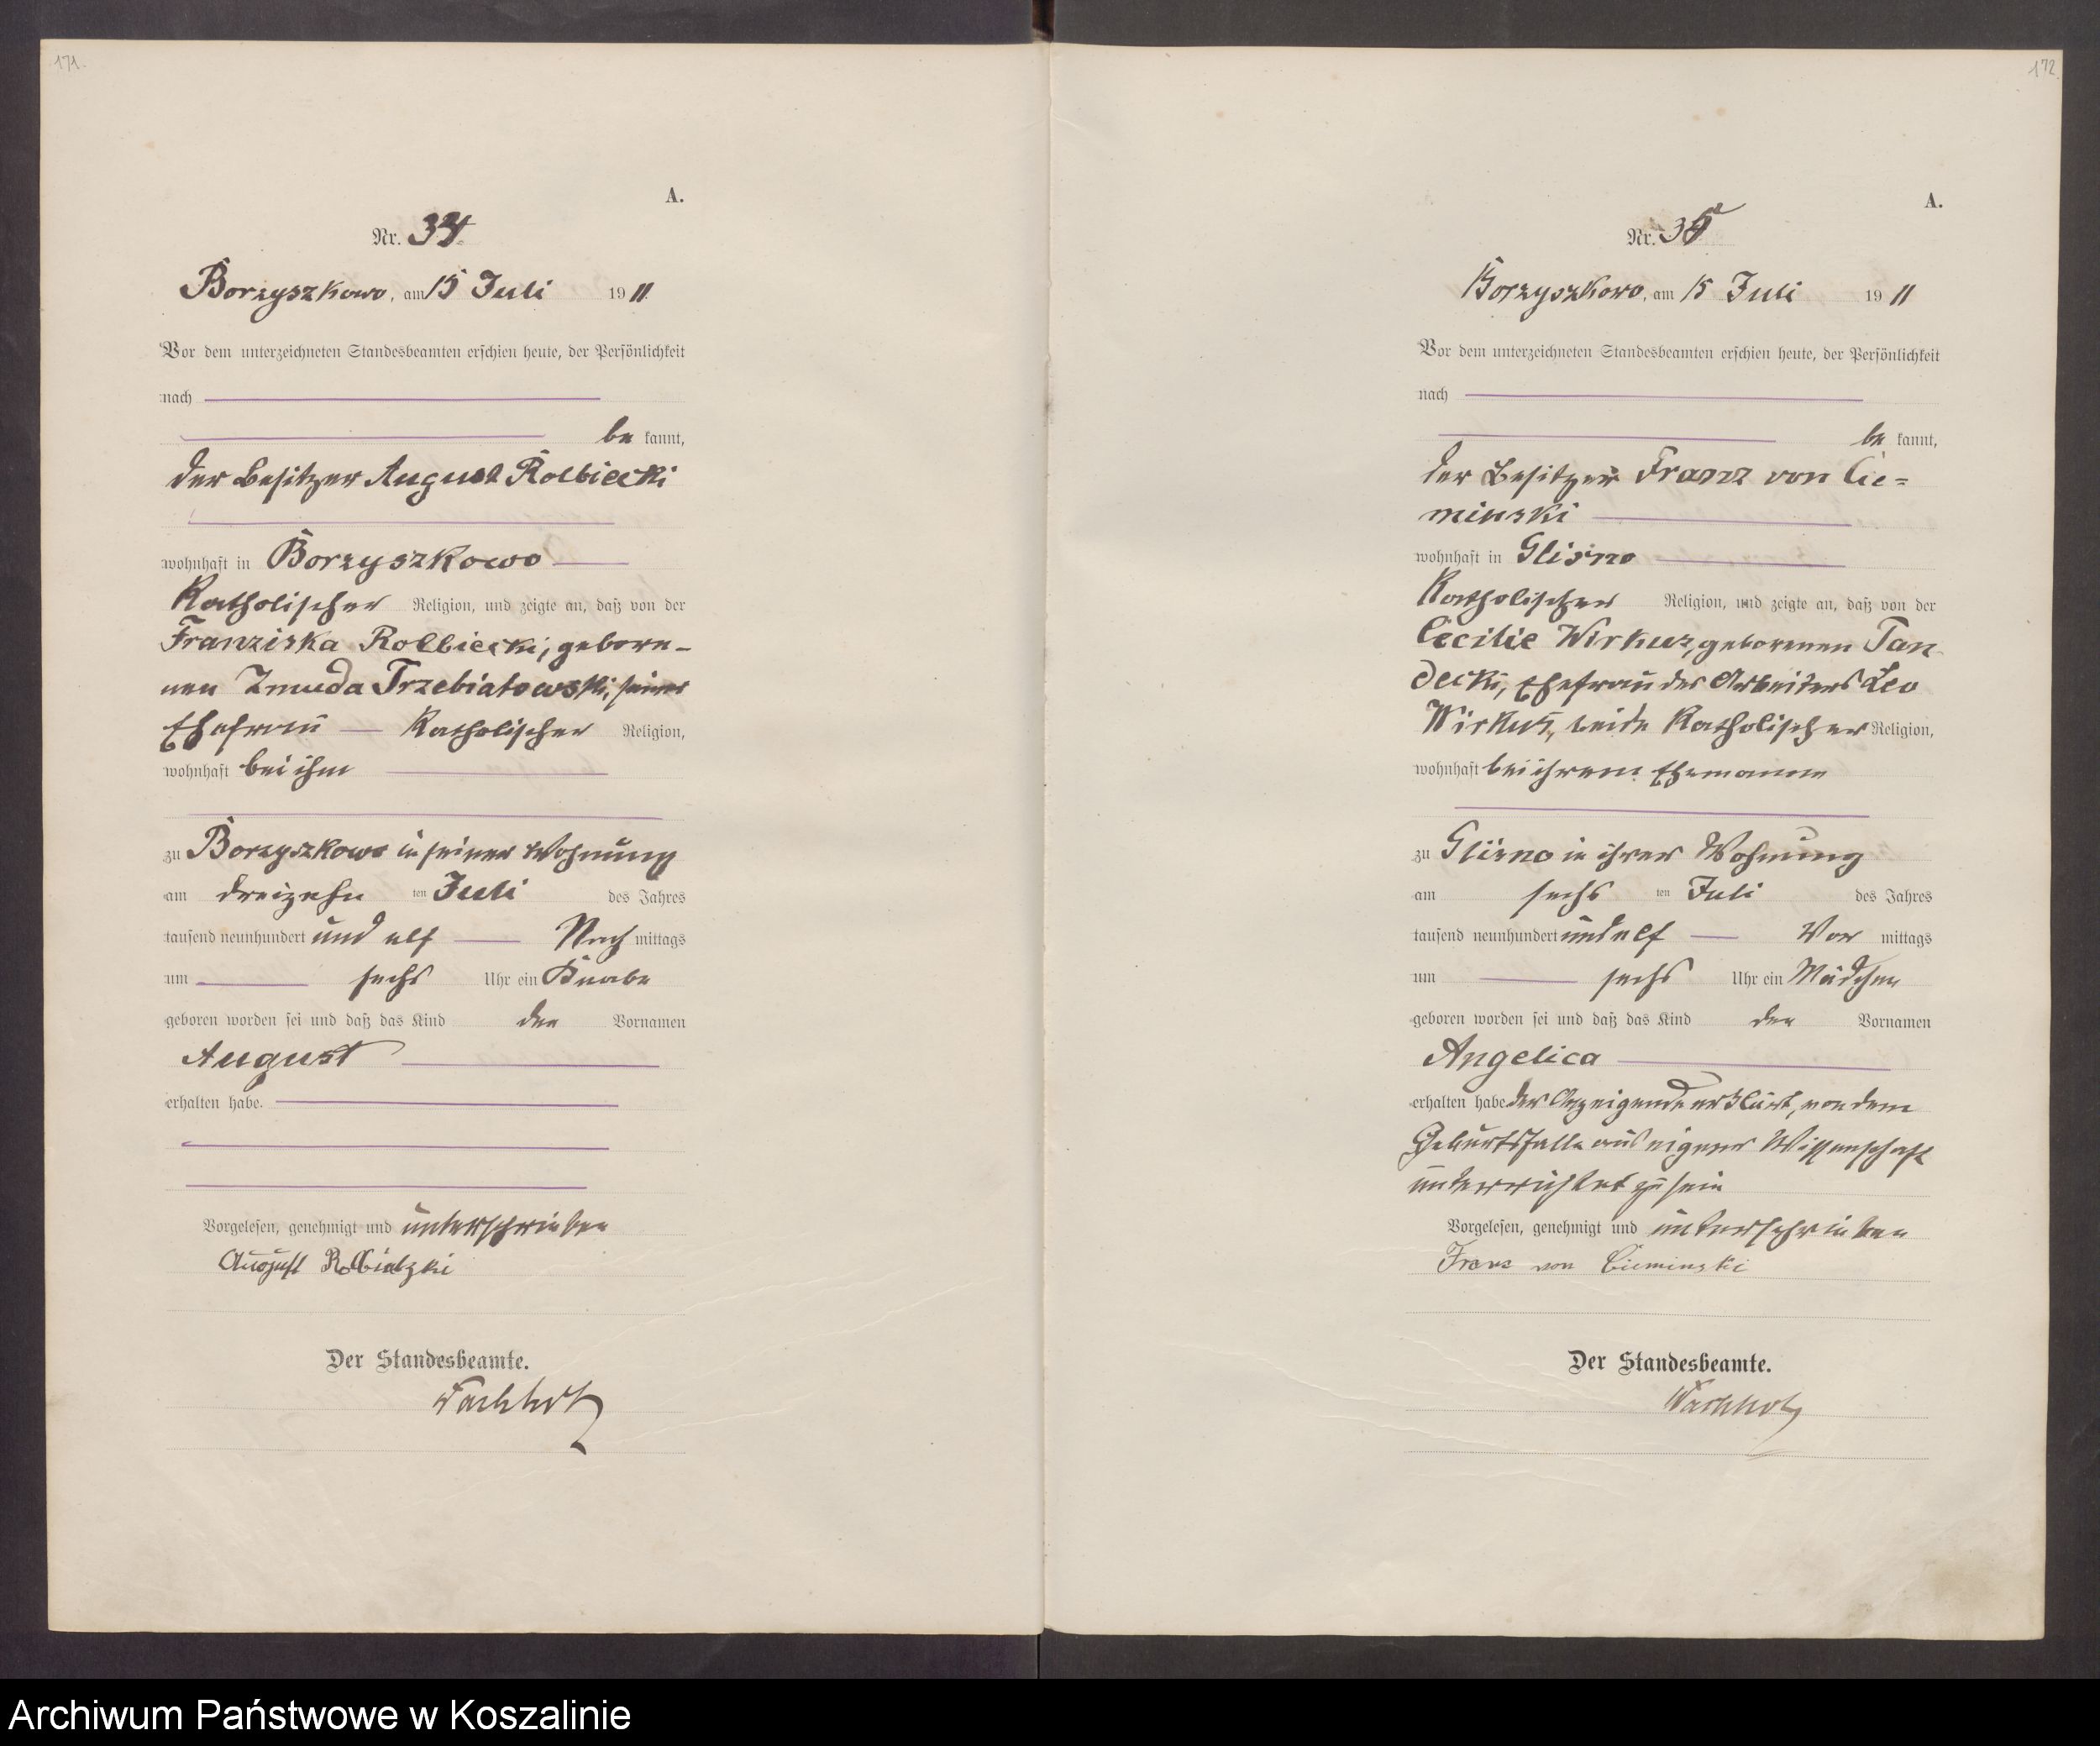 171.
A.
Nr. 34.
Borzyszkowo, am 15 Juli 1911.
Vor dem unterzeichneten Standesbeamten erschien heute, der Persönlichkeit
nach
be kannt,
der Besitzer August Rolbiecki
wohnhaft in Borzyszkowo
Katholischer Religion, und zeigte an, daß von der
Franziska Rolbiecki, gebore-
nen Zmuda Trzebiatowski, seiner
Ehefrau Katholischer Religion,
wohnhaft bei ihm
zu Borzyszkowo in seiner Wohnung
am dreizehn ten Juli des Jahres
tausend neunhundert und elf Nach mittags
um sechs Uhr ein Knabe
geboren worden sei und daß das Kind den Vornamen
August
erhalten habe.
Vorgelesen, genehmigt und unterschrieben
August
Der Standesbeamte.
172.
A.
Nr. 35
Borzyszkowo, am 15 Juli 1911
Vor dem unterzeichneten Standesbeamten erschien heute, der Persönlichkeit
nach
be kannt,
der Besitzer Franz von Cie=
minski
wohnhaft in Glisno
Katholischer Religion, und zeigte an, daß von der
Cecilie Wirkus, geborenen Tan-
decki, Ehefrau des Arbeiters Leo
Wirkus, beide Katholischer Religion,
wohnhaft bei ihrem Ehemanne
zu Glisno in ihrer Wohnung
am sechs ten Juli des Jahres
tausend neunhundert und elf Vor mittags
um sechs Uhr ein Mädchen
geboren worden sei und daß das Kind den Vornamen
Angelica
erhalten habe. der Anzeigende erklärt, von dem
Geburtsfalle aus eigener Wissenschaft
unterrichtet zu sein
Vorgelesen, genehmigt und unterschrieben
Franz von Cieminski
Der Standesbeamte.
Archiwum Państwowe w Koszalinie